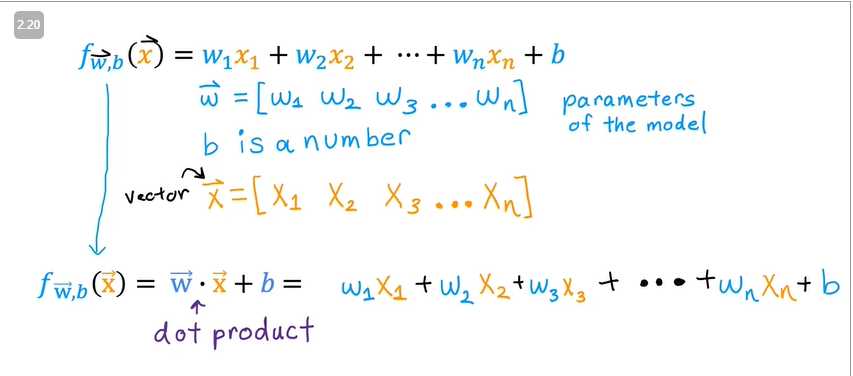 2.20
f_{w⃗,b}(x⃗) = w₁x₁ + w₂x₂ + ⋯ + wₙxₙ + b
w⃗ = [w₁ w₂ w₃ ... wₙ] parameters
of the model
b is a number
vector x⃗ = [x₁ x₂ x₃ ... xₙ]
f_{w⃗,b}(x⃗) = w⃗ · x⃗ + b = w₁x₁ + w₂x₂ + w₃x₃ + ... + wₙxₙ + b
dot product